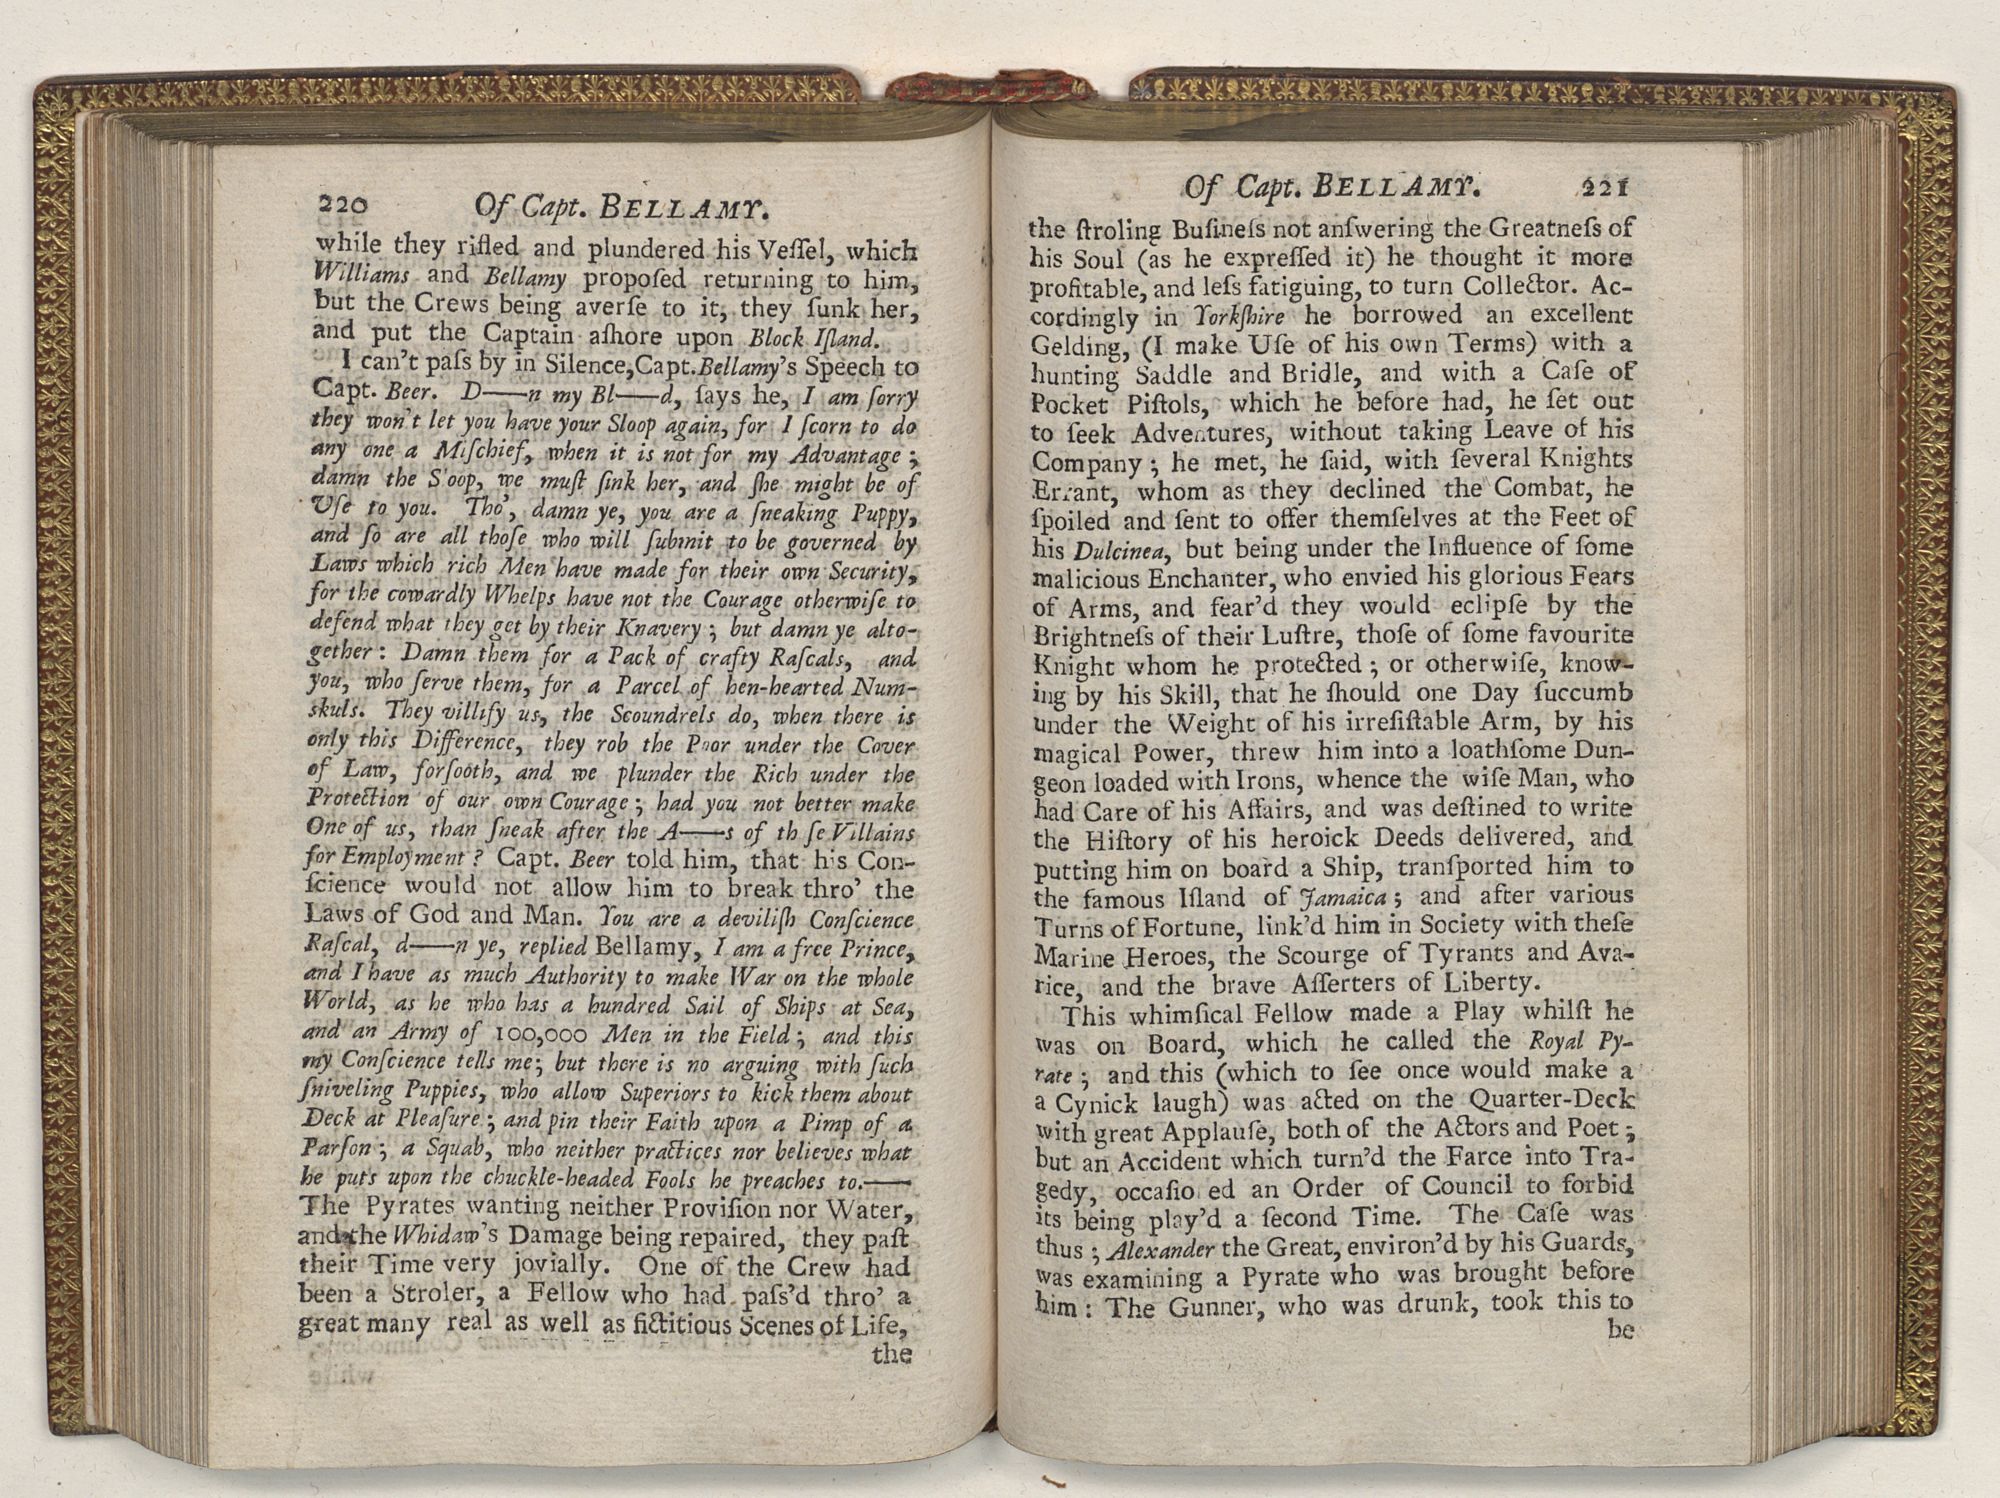 220 Of Capt. BELLAMY.
while they rifled and plundered his Veſſel, which
Williams and Bellamy propoſed returning to him,
but the Crews being averſe to it, they ſunk her,
and put the Captain aſhore upon Block Iſland.
I can't paſs by in Silence,Capt.Bellamy's Speech to
Capt. Beer. D——n my Bl——d, ſays he, I am ſorry
they won't let you have your Sloop again, for I ſcorn to do
any one a Miſchief, when it is not for my Advantage;
damn the S oop, we muſt ſink her, and ſhe might be of
Uſe to you. Tho', damn ye, you are a ſneaking Puppy,
and ſo are all thoſe who will ſubmit to be governed by
Laws which rich Men have made for their own Security,
for the cowardly Whelps have not the Courage otherwiſe to
defend what they get by their Knavery; but damn ye alto-
gether: Damn them for a Pack of crafty Raſcals, and
you, who ſerve them, for a Parcel of hen-hearted Num-
skuls. They villify us, the Scoundrels do, when there is
only this Difference, they rob the Poor under the Cover
of Law, forſooth, and we plunder the Rich under the
Protection of our own Courage; had you not better make
One of us, than ſneak after the A——s of th ſe Villains
for Employment? Capt. Beer told him, that his Con-
ſcience would not allow him to break thro' the
Laws of God and Man. You are a deviliſh Conſcience
Raſcal, d——n ye, replied Bellamy, I am a free Prince,
and I have as much Authority to make War on the whole
World, as he who has a hundred Sail of Ships at Sea,
and an Army of 100,000 Men in the Field; and this
my Conſcience tells me; but there is no arguing with ſuch
ſniveling Puppies, who allow Superiors to kick them about
Deck at Pleaſure; and pin their Faith upon a Pimp of a
Parſon; a Squab, who neither practices nor believes what
he puts upon the chuckle-headed Fools he preaches to.——
The Pyrates wanting neither Proviſion nor Water,
and the Whidaw's Damage being repaired, they paſt
their Time very jovially. One of the Crew had
been a Stroler, a Fellow who had paſs'd thro' a
great many real as well as fictitious Scenes of Life,
the
Of Capt. BELLAMY. 221
the ſtroling Buſineſs not anſwering the Greatneſs of
his Soul (as he expreſſed it) he thought it more
profitable, and leſs fatiguing, to turn Collector. Ac-
cordingly in Yorkſhire he borrowed an excellent
Gelding, (I make Uſe of his own Terms) with a
hunting Saddle and Bridle, and with a Caſe of
Pocket Piſtols, which he before had, he ſet out
to ſeek Adventures, without taking Leave of his
Company; he met, he ſaid, with ſeveral Knights
Errant, whom as they declined the Combat, he
ſpoiled and ſent to offer themſelves at the Feet of
his Dulcinea, but being under the Influence of ſome
malicious Enchanter, who envied his glorious Fears
of Arms, and fear'd they would eclipſe by the
Brightneſs of their Luſtre, thoſe of ſome favourite
Knight whom he protected; or otherwiſe, know-
ing by his Skill, that he ſhould one Day ſuccumb
under the Weight of his irreſiſtable Arm, by his
magical Power, threw him into a loathſome Dun-
geon loaded with Irons, whence the wiſe Man, who
had Care of his Affairs, and was deſtined to write
the Hiſtory of his heroick Deeds delivered, and
putting him on board a Ship, tranſported him to
the famous Iſland of Jamaica; and after various
Turns of Fortune, link'd him in Society with theſe
Marine Heroes, the Scourge of Tyrants and Ava-
rice, and the brave Aſſerters of Liberty.
This whimſical Fellow made a Play whilſt he
was on Board, which he called the Royal Py-
rate; and this (which to ſee once would make a
a Cynick laugh) was acted on the Quarter-Deck
with great Applauſe, both of the Actors and Poet;
but an Accident which turn'd the Farce into Tra-
gedy, occaſio ed an Order of Council to forbid
its being play'd a ſecond Time. The Caſe was
thus; Alexander the Great, environ'd by his Guards,
was examining a Pyrate who was brought before
him: The Gunner, who was drunk, took this to
be